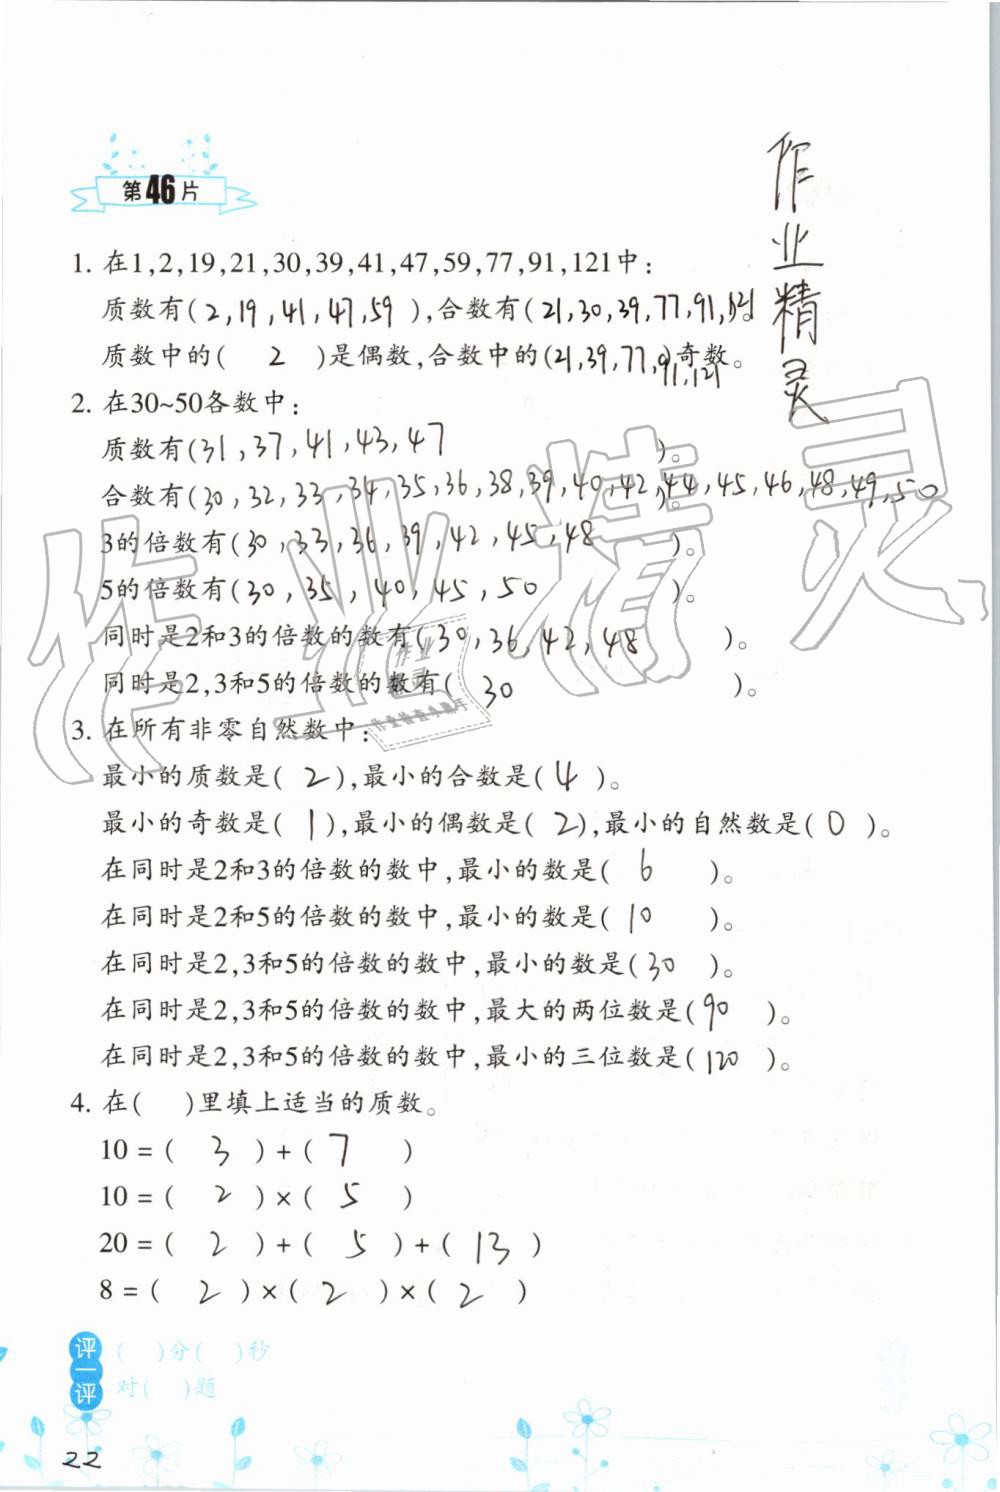 第46片
作业精灵
1. 在1,2,19,21,30,39,41,47,59,77,91,121中:
质数有(2,19,41,47,59),合数有(21,30,39,77,91,121
质数中的( 2 )是偶数,合数中的(21,39,77,91,121)奇数。
2. 在30~50各数中:
质数有(31,37,41,43,47 )。
合数有(30,32,33,34,35,36,38,39,40,42,44,45,46,48,49,50 )。
3的倍数有(30,33,36,39,42,45,48 )。
5的倍数有(30,35,40,45,50 )。
同时是2和3的倍数的数有(30,36,42,48 )。
同时是2,3和5的倍数的数有( 30 )。
3. 在所有非零自然数中:
最小的质数是( 2 ),最小的合数是( 4 )。
最小的奇数是( 1 ),最小的偶数是( 2 ),最小的自然数是( 0 )。
在同时是2和3的倍数的数中,最小的数是( 6 )。
在同时是2和5的倍数的数中,最小的数是( 10 )。
在同时是2,3和5的倍数的数中,最小的数是( 30 )。
在同时是2,3和5的倍数的数中,最大的两位数是( 90 )。
在同时是2,3和5的倍数的数中,最小的三位数是( 120 )。
4. 在( )里填上适当的质数。
10 = ( 3 ) + ( 7 )
10 = ( 2 ) × ( 5 )
20 = ( 2 ) + ( 5 ) + ( 13 )
8 = ( 2 ) × ( 2 ) × ( 2 )
评一评
( )分( )秒
对( )题
22
作业精灵